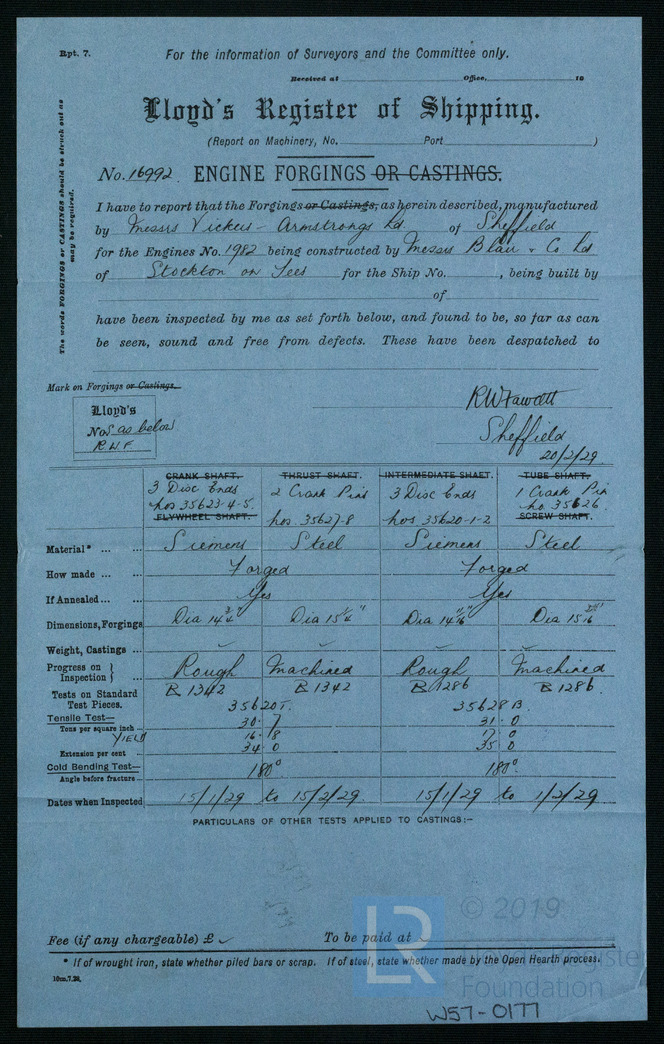 Rpt. 7.
For the information of Surveyors and the Committee only.
Received at Office, 19
Lloyd's Register of Shipping.
(Report on Machinery, No. Port )
No. 16992. ENGINE FORGINGS OR CASTINGS.
The words FORGINGS or CASTINGS should be struck out as
may be required.
I have to report that the Forgings or Castings, as herein described, manufactured
by Messrs Vickers-Armstrongs Ld. of Sheffield
for the Engines No. 1982 being constructed by Messrs Blair & Co Ld
of Stockton on Tees for the Ship No. , being built by
of
have been inspected by me as set forth below, and found to be, so far as can
be seen, sound and free from defects. These have been despatched to
Mark on Forgings or Castings.
Lloyd's
Nos as below
R.W.F
RWFawcett
Sheffield
20/2/29.
CRANK SHAFT. THRUST SHAFT. INTERMEDIATE SHAFT. TUBE SHAFT.
3 Disc Ends 2 Crank Pins 3 Disc Ends 1 Crank Pin
Nos 35623-4-5. Nos. 35627-8 Nos 35620-1-2 No. 35626
FLYWHEEL SHAFT. SCREW SHAFT.
Material* ... ... Siemens Steel Siemens Steel
How made ... ... Forged Forged
If Annealed ... ... Yes Yes
Dimensions, Forgings Dia 14 3/4" Dia 15 1/4" Dia Dia
Weight, Castings ...
Progress on Inspection Rough Machined Rough Machined
Tests on Standard Test Pieces. B 1342 B 1342 B 1286 B 1286.
35620T. 35628B.
Tensile Test—
Tons per square inch 30. 7 31. 0
YIELD 16. 8 17. 0
Extension per cent 34 0 35 0
Cold Bending Test—
Angle before fracture 180° 180°.
Dates when Inspected 15/1/29 to 15/2/29. 15/1/29 to 1/2/29
PARTICULARS OF OTHER TESTS APPLIED TO CASTINGS:-
Fee (if any chargeable) £ To be paid at
* If of wrought iron, state whether piled bars or scrap. If of steel, state whether made by the Open Hearth process.
10m,7.28.
© 2019
LR
Lloyd's Register
Foundation
W57-0177